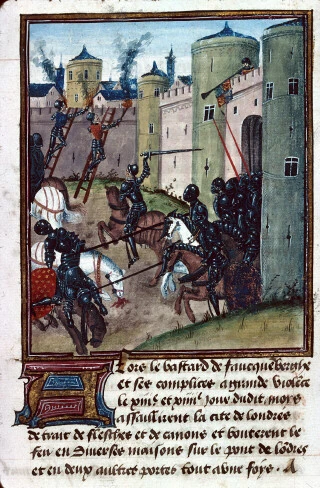 Lors le bastard de faucquēberghe
et ses complices a grande violēce
le xiiiᵉ et xiiiiᵉ jour dudit moys
assaillirent la cite de londres
de trait de flesches et de canons et bouterent le
feu en diverses maisons sur le pont de lōdres
et en deux aultres portes tout a une foys . A